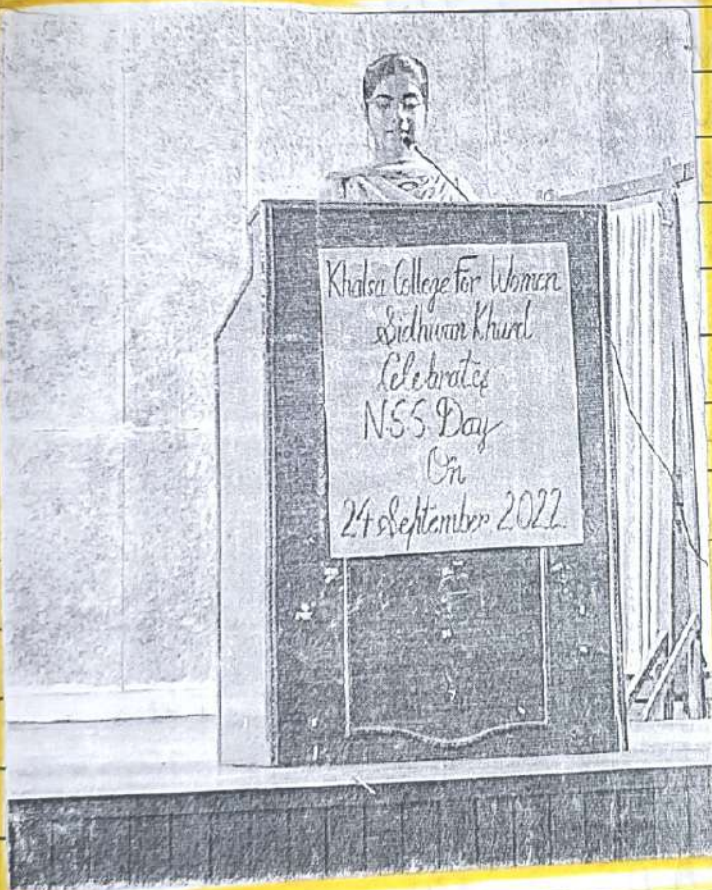 Khalsa College For Women
Sidhwan Khurd
Celebrates
NSS Day
On
24 September 2022